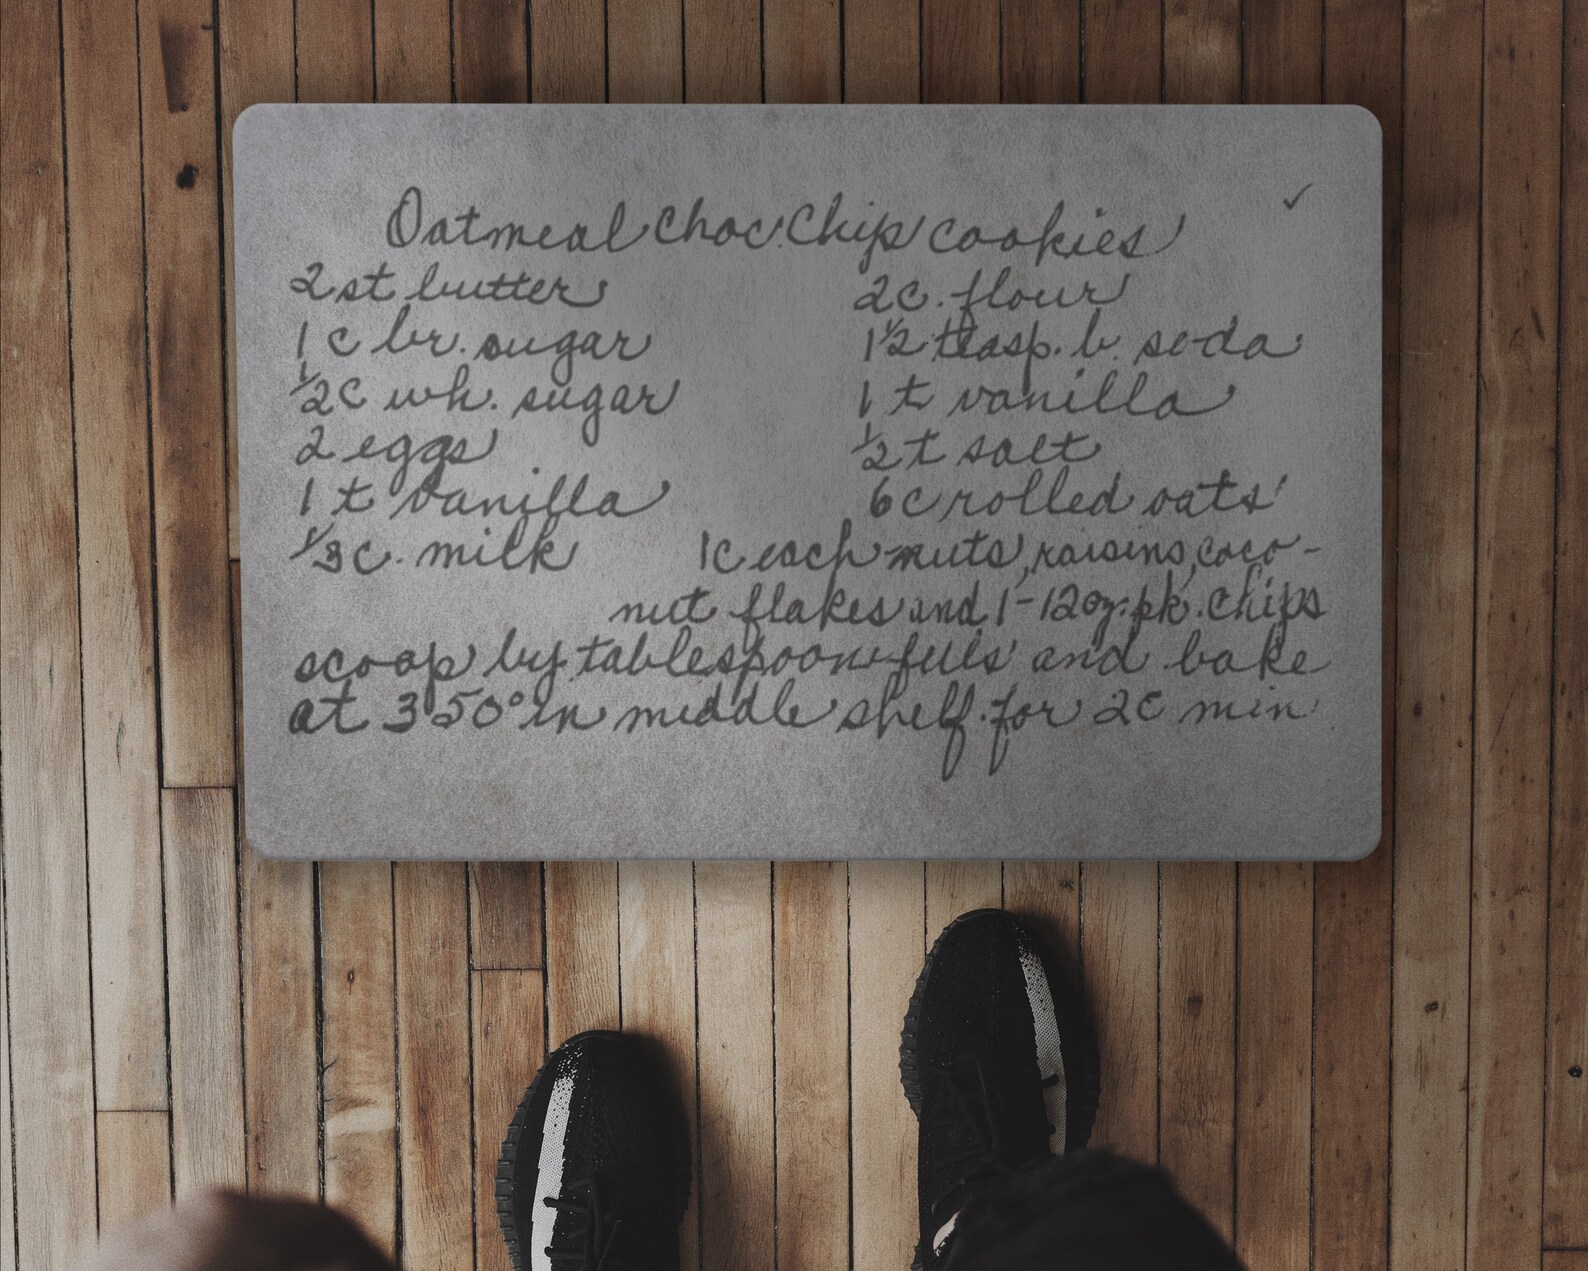 ✓
Oatmeal Choc. Chip cookies
2 st butter
1 c br. sugar
1/2 c wh. sugar
2 eggs
1 t vanilla
1/3 c. milk
2 c. flour
1 1/2 teasp. b. soda
1 t vanilla
1/2 t salt
6 c rolled oats
1 c each nuts, raisins, coco-
nut flakes and 1-12 oz. pk. chips
scoop by tablespoonfuls and bake
at 350° in middle shelf for min